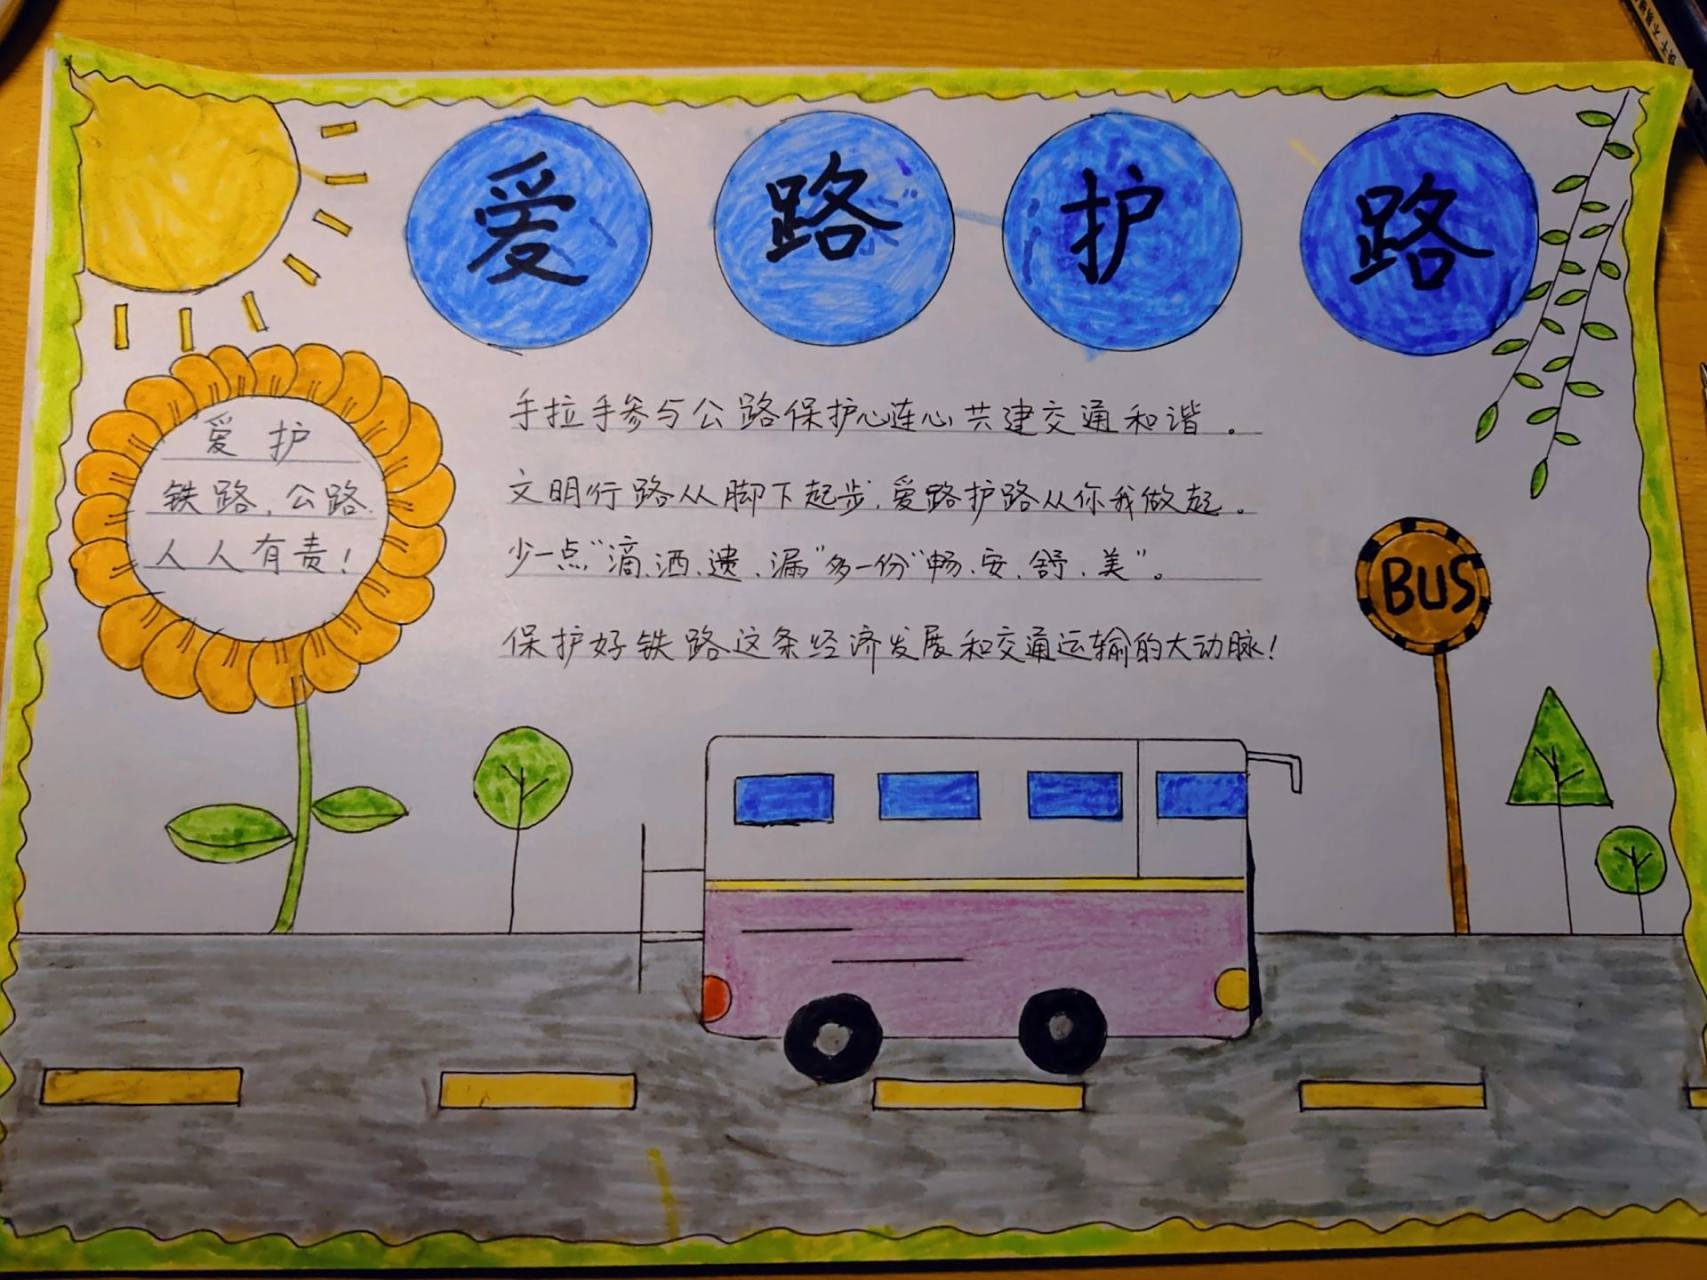 爱路护路
爱护
铁路、公路
人人有责!
手拉手参与公路保护心连心共建交通和谐。
文明行路从脚下起步,爱路护路从你我做起。
少一点“滴、洒、遗、漏”多一份“畅、安、舒、美”。
保护好铁路这条经济发展和交通运输的大动脉!
BUS